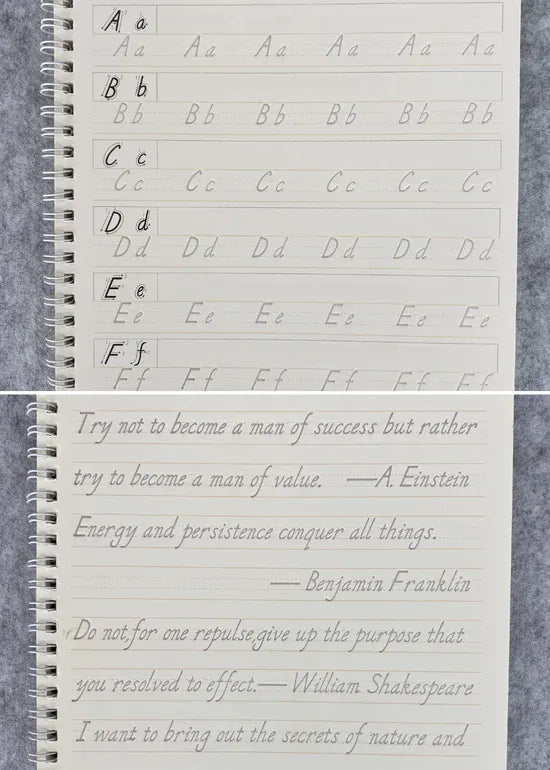 A a
A a A a A a A a A a A a
B b
B b B b B b B b B b B b
C c
C c C c C c C c C c C c
D d
D d D d D d D d D d D d
E e
E e E e E e E e E e E e
F f
F f F f F f F f F f F f
Try not to become a man of success but rather
try to become a man of value. —A. Einstein
Energy and persistence conquer all things.
— Benjamin Franklin
Do not,for one repulse,give up the purpose that
you resolved to effect.— William Shakespeare
I want to bring out the secrets of nature and